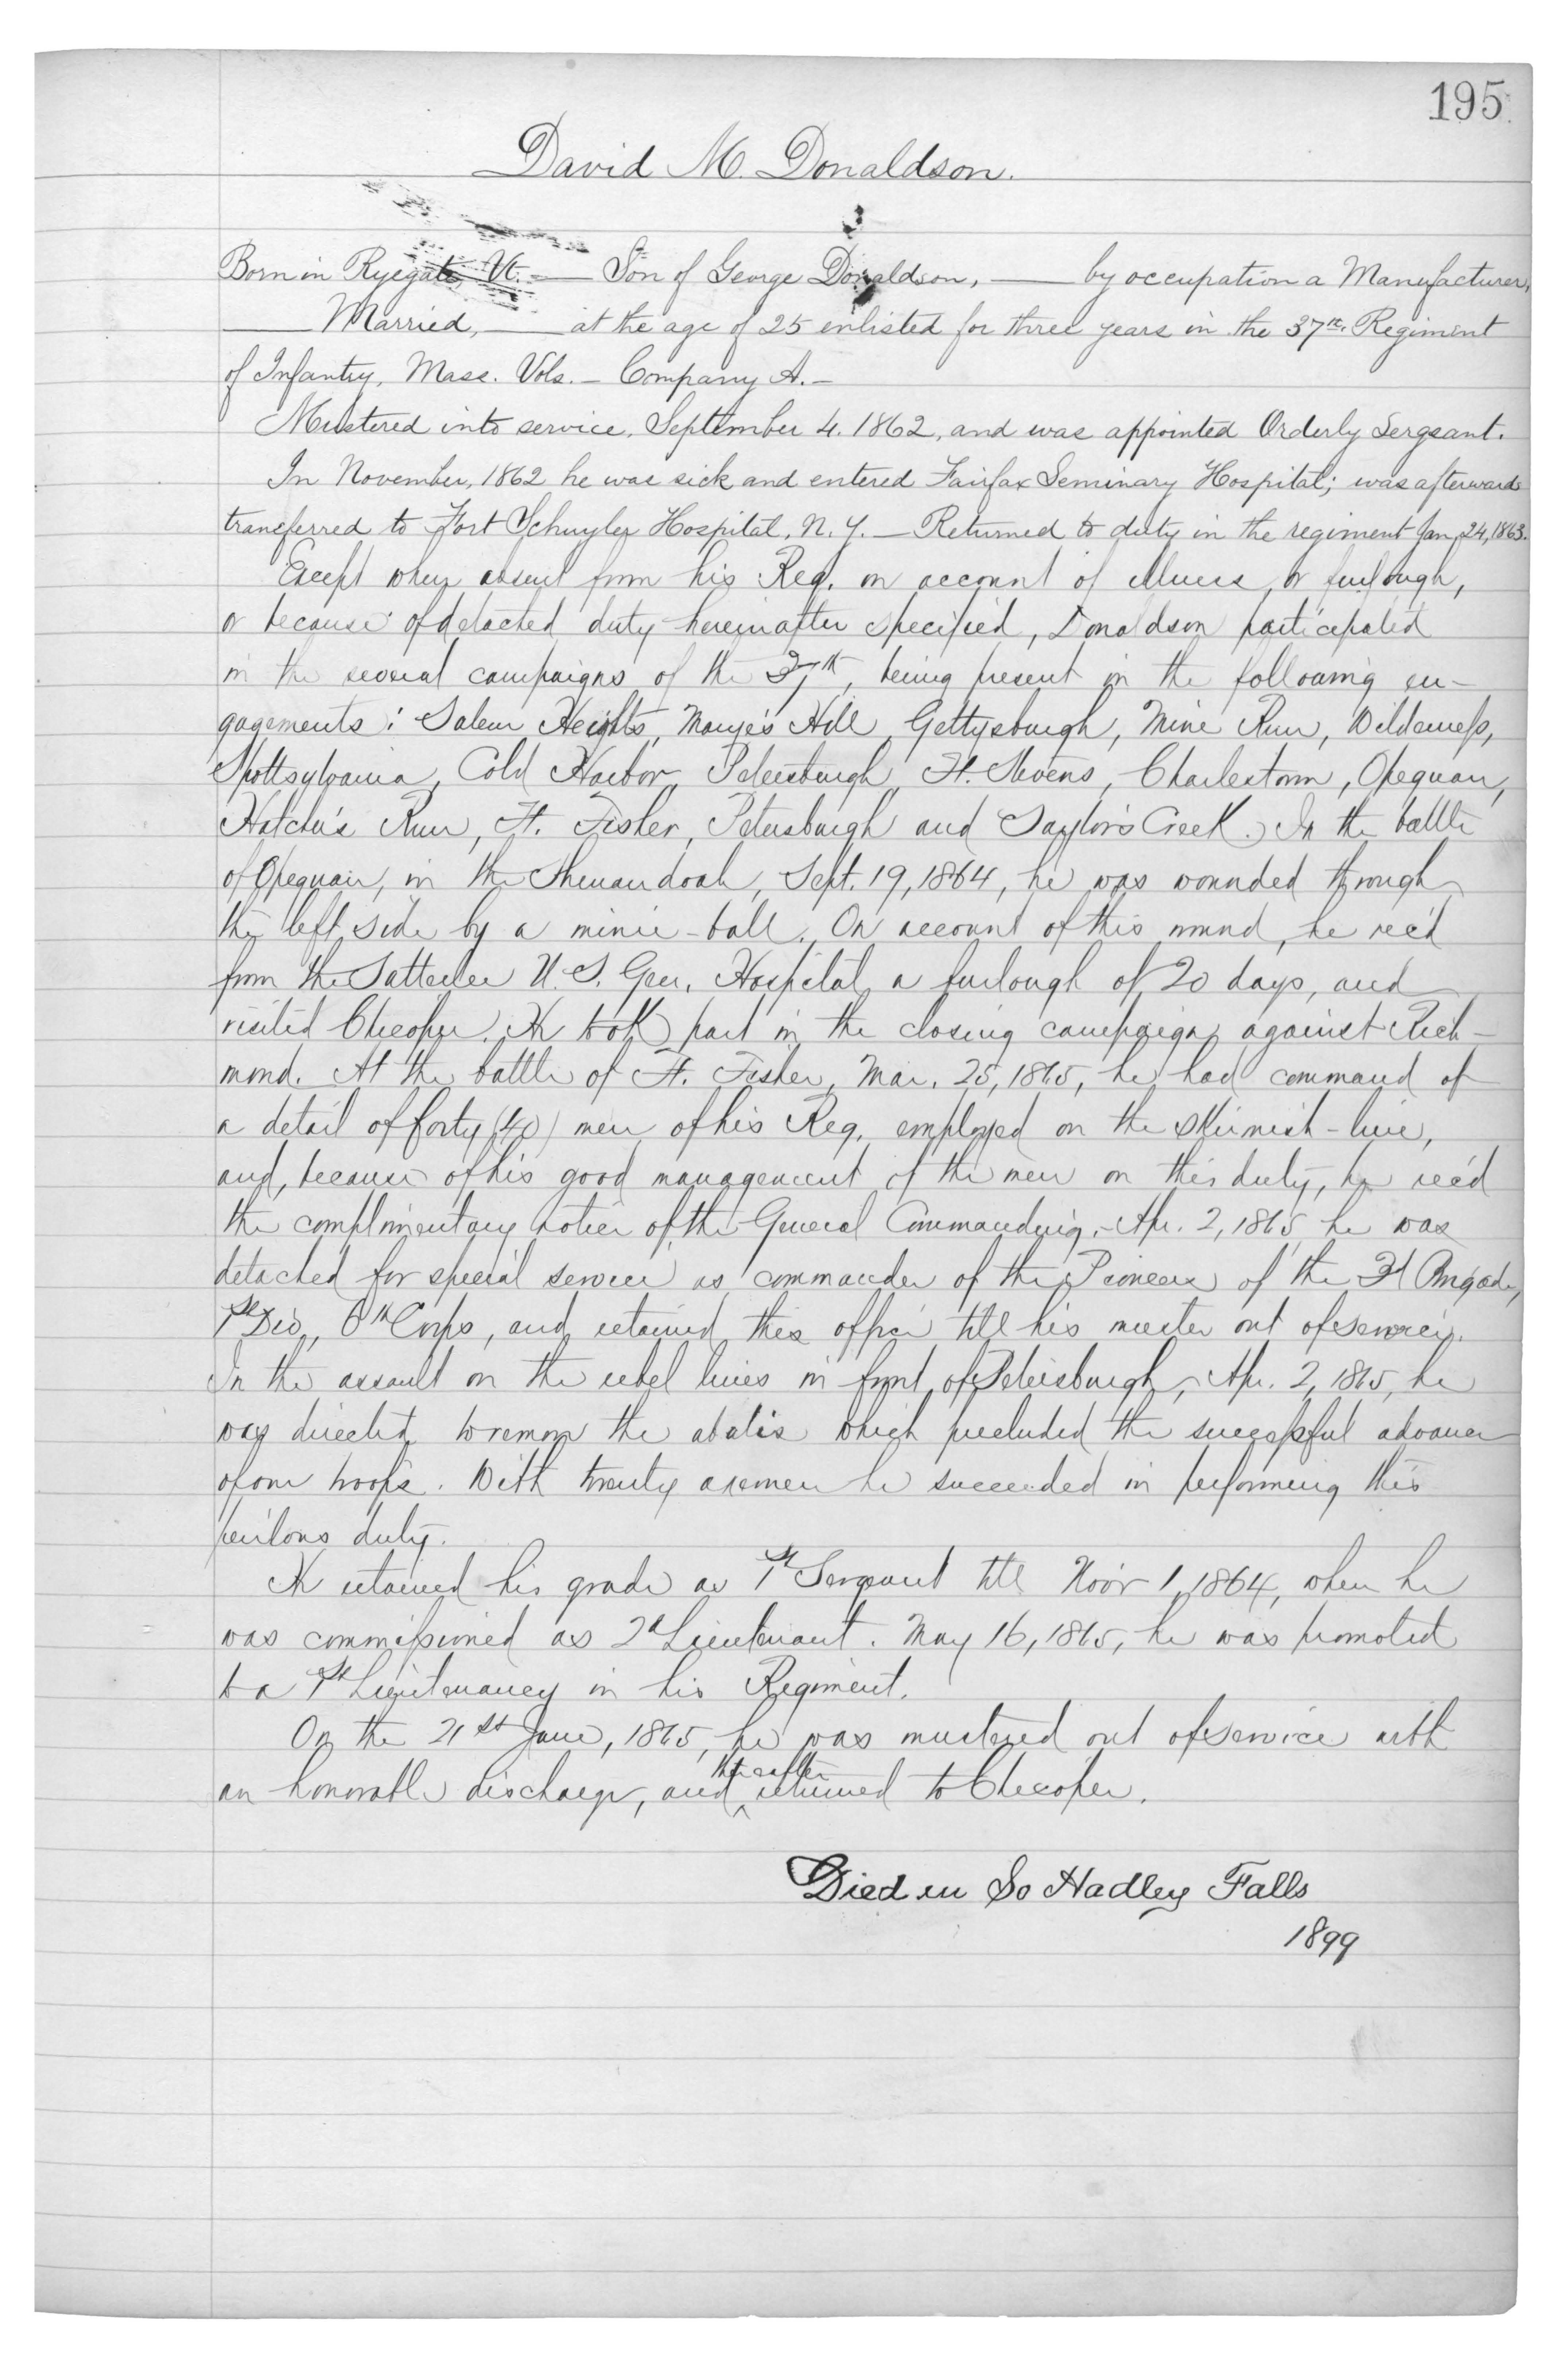 195
David M. Donaldson.
Born in Ryegate, Vt. — Son of George Donaldson, — by occupation a Manufacturer,
— Married, — at the age of 25 enlisted for three years in the 37th. Regiment
of Infantry, Mass. Vols. — Company A. —
Mustered into service, September 4. 1862, and was appointed Orderly Sergeant.
In November, 1862 he was sick and entered Fairfax Seminary Hospital; was afterwards
transferred to Fort Schuyler Hospital, N. Y. — Returned to duty in the regiment Jan. 24, 1863.
Except when absent from his Reg. on account of illness, or furlough,
or because of detached duty hereinafter specified, Donaldson participated
in the several campaigns of the 37th, being present in the following en-
gagements: Salem Heights, Marye's Hill, Gettysburgh, Mine Run, Wilderness,
Spottsylvania, Cold Harbor, Petersburgh, Ft. Stevens, Charlestown, Opequan,
Hatcher's Run, Ft. Fisher, Petersburgh and Saylor's Creek. In the battle
of Opequan, in the Shenandoah, Sept. 19, 1864, he was wounded through
the left side by a minie-ball. On account of this wound, he rec'd
from the Satterlee U. S. Gen. Hospital a furlough of 20 days, and
visited Chicopee. He took part in the closing campaign against Rich-
mond. At the battle of Ft. Fisher, Mar. 25, 1865, he had command of
a detail of forty (40) men of his Reg. employed on the skirmish-line,
and, because of his good management of the men on this duty, he rec'd
the complimentary notice of the General Commanding. Apr. 2, 1865 he was
detached for special service as commander of the Pioneers of the 3d Brigade,
1st Div., 6th Corps, and retained this office till his muster out of service.
In the assault on the rebel lines in front of Petersburgh, Apr. 2, 1865, he
was directed to remove the abatis which precluded the successful advance
of our troops. With twenty axemen he succeeded in performing this
perilous duty.
He retained his grade as 1st Sergeant till Nov'r 1, 1864, when he
was commissioned as 2d Lieutenant. May 16, 1865, he was promoted
to a 1st Lieutenancy in his Regiment.
On the 21st June, 1865, he was mustered out of service with
an honorable discharge, and thereafter returned to Chicopee.
Died in So Hadley Falls
1899